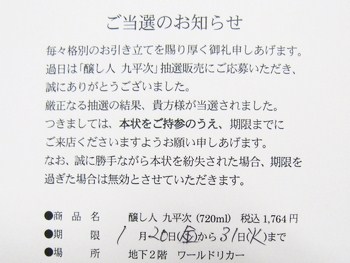 ご当選のお知らせ
毎々格別のお引き立てを賜り厚く御礼申しあげます。
過日は「醸し人 九平次」抽選販売にご応募いただき、
誠にありがとうございました。
厳正なる抽選の結果、貴方様が当選されました。
つきましては、本状をご持参のうえ、期限までに
ご来店くださいますようお願い申しあげます。
なお、誠に勝手ながら本状を紛失された場合、期限を
過ぎた場合は無効とさせていただきます。
●商 品 名 醸し人 九平次 (720ml) 税込 1,764 円
●期 限 1月20日(金)から31日(火)まで
●場 所 地下2階 ワールドリカー